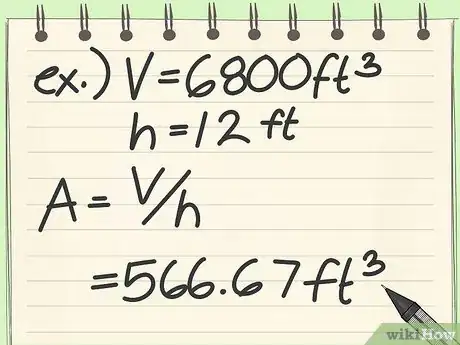 ex.) V=6800ft³
h=12 ft
A= V/h
=566.67ft³
wikiHow